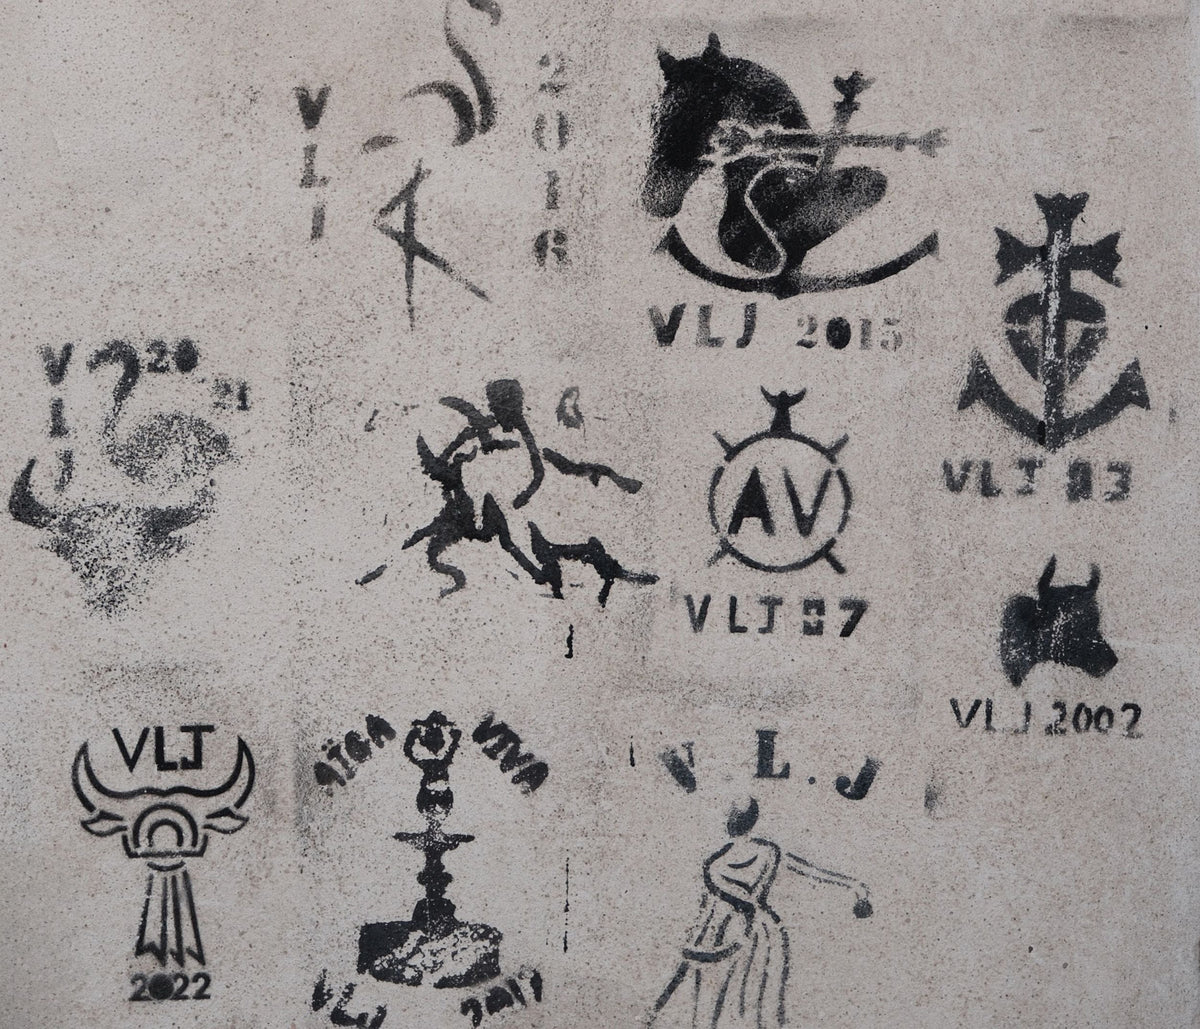 VLJ
2016
VLJ 2015
VLJ 93
VLJ
20
21
AV
VLJ 97
VLJ 2002
VLJ
2022
VIVA
VLJ
V.L.J